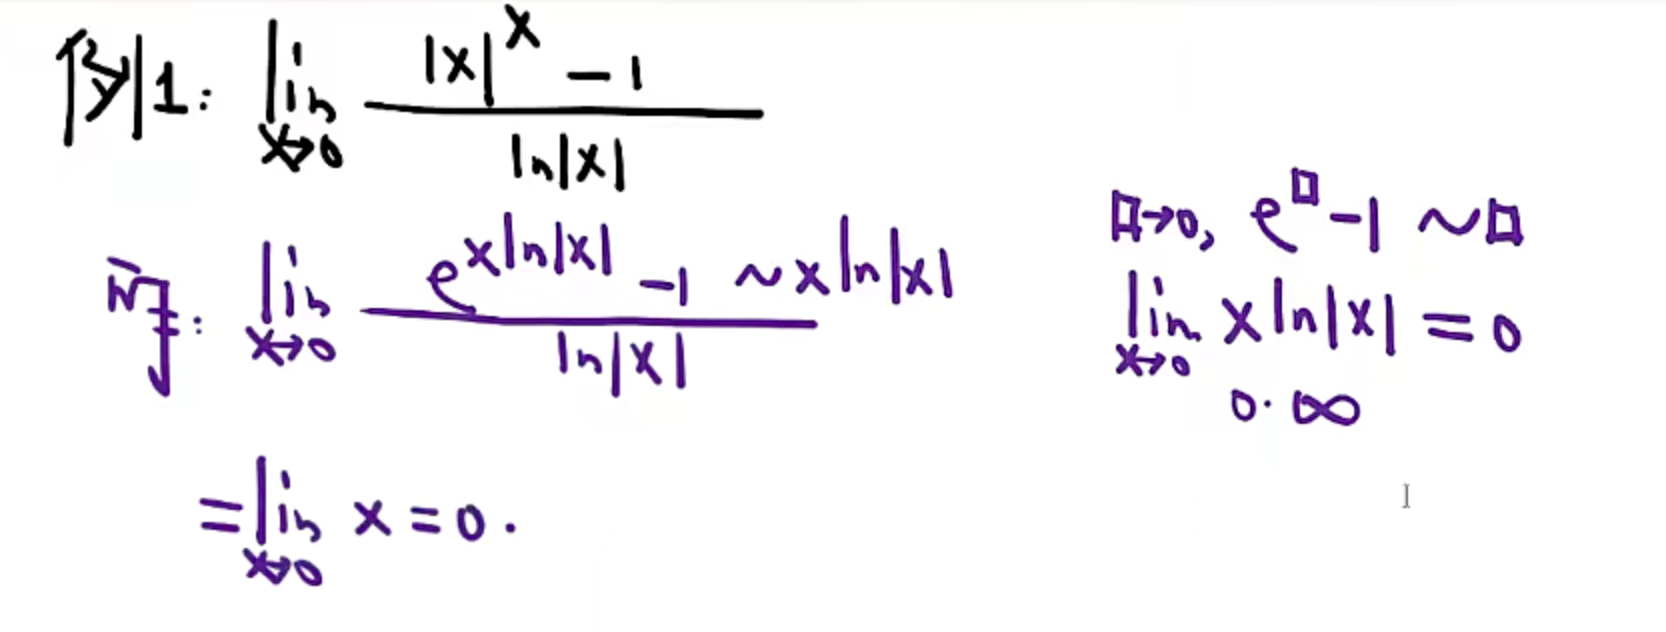 例1: lim x→0 (|x|^x - 1) / ln|x|
可: lim x→0 (e^{x ln|x|} - 1 ~ x ln|x|) / ln|x|
= lim x→0 x = 0.
□→0, e^□ - 1 ~ □
lim x→0 x ln|x| = 0
0·∞